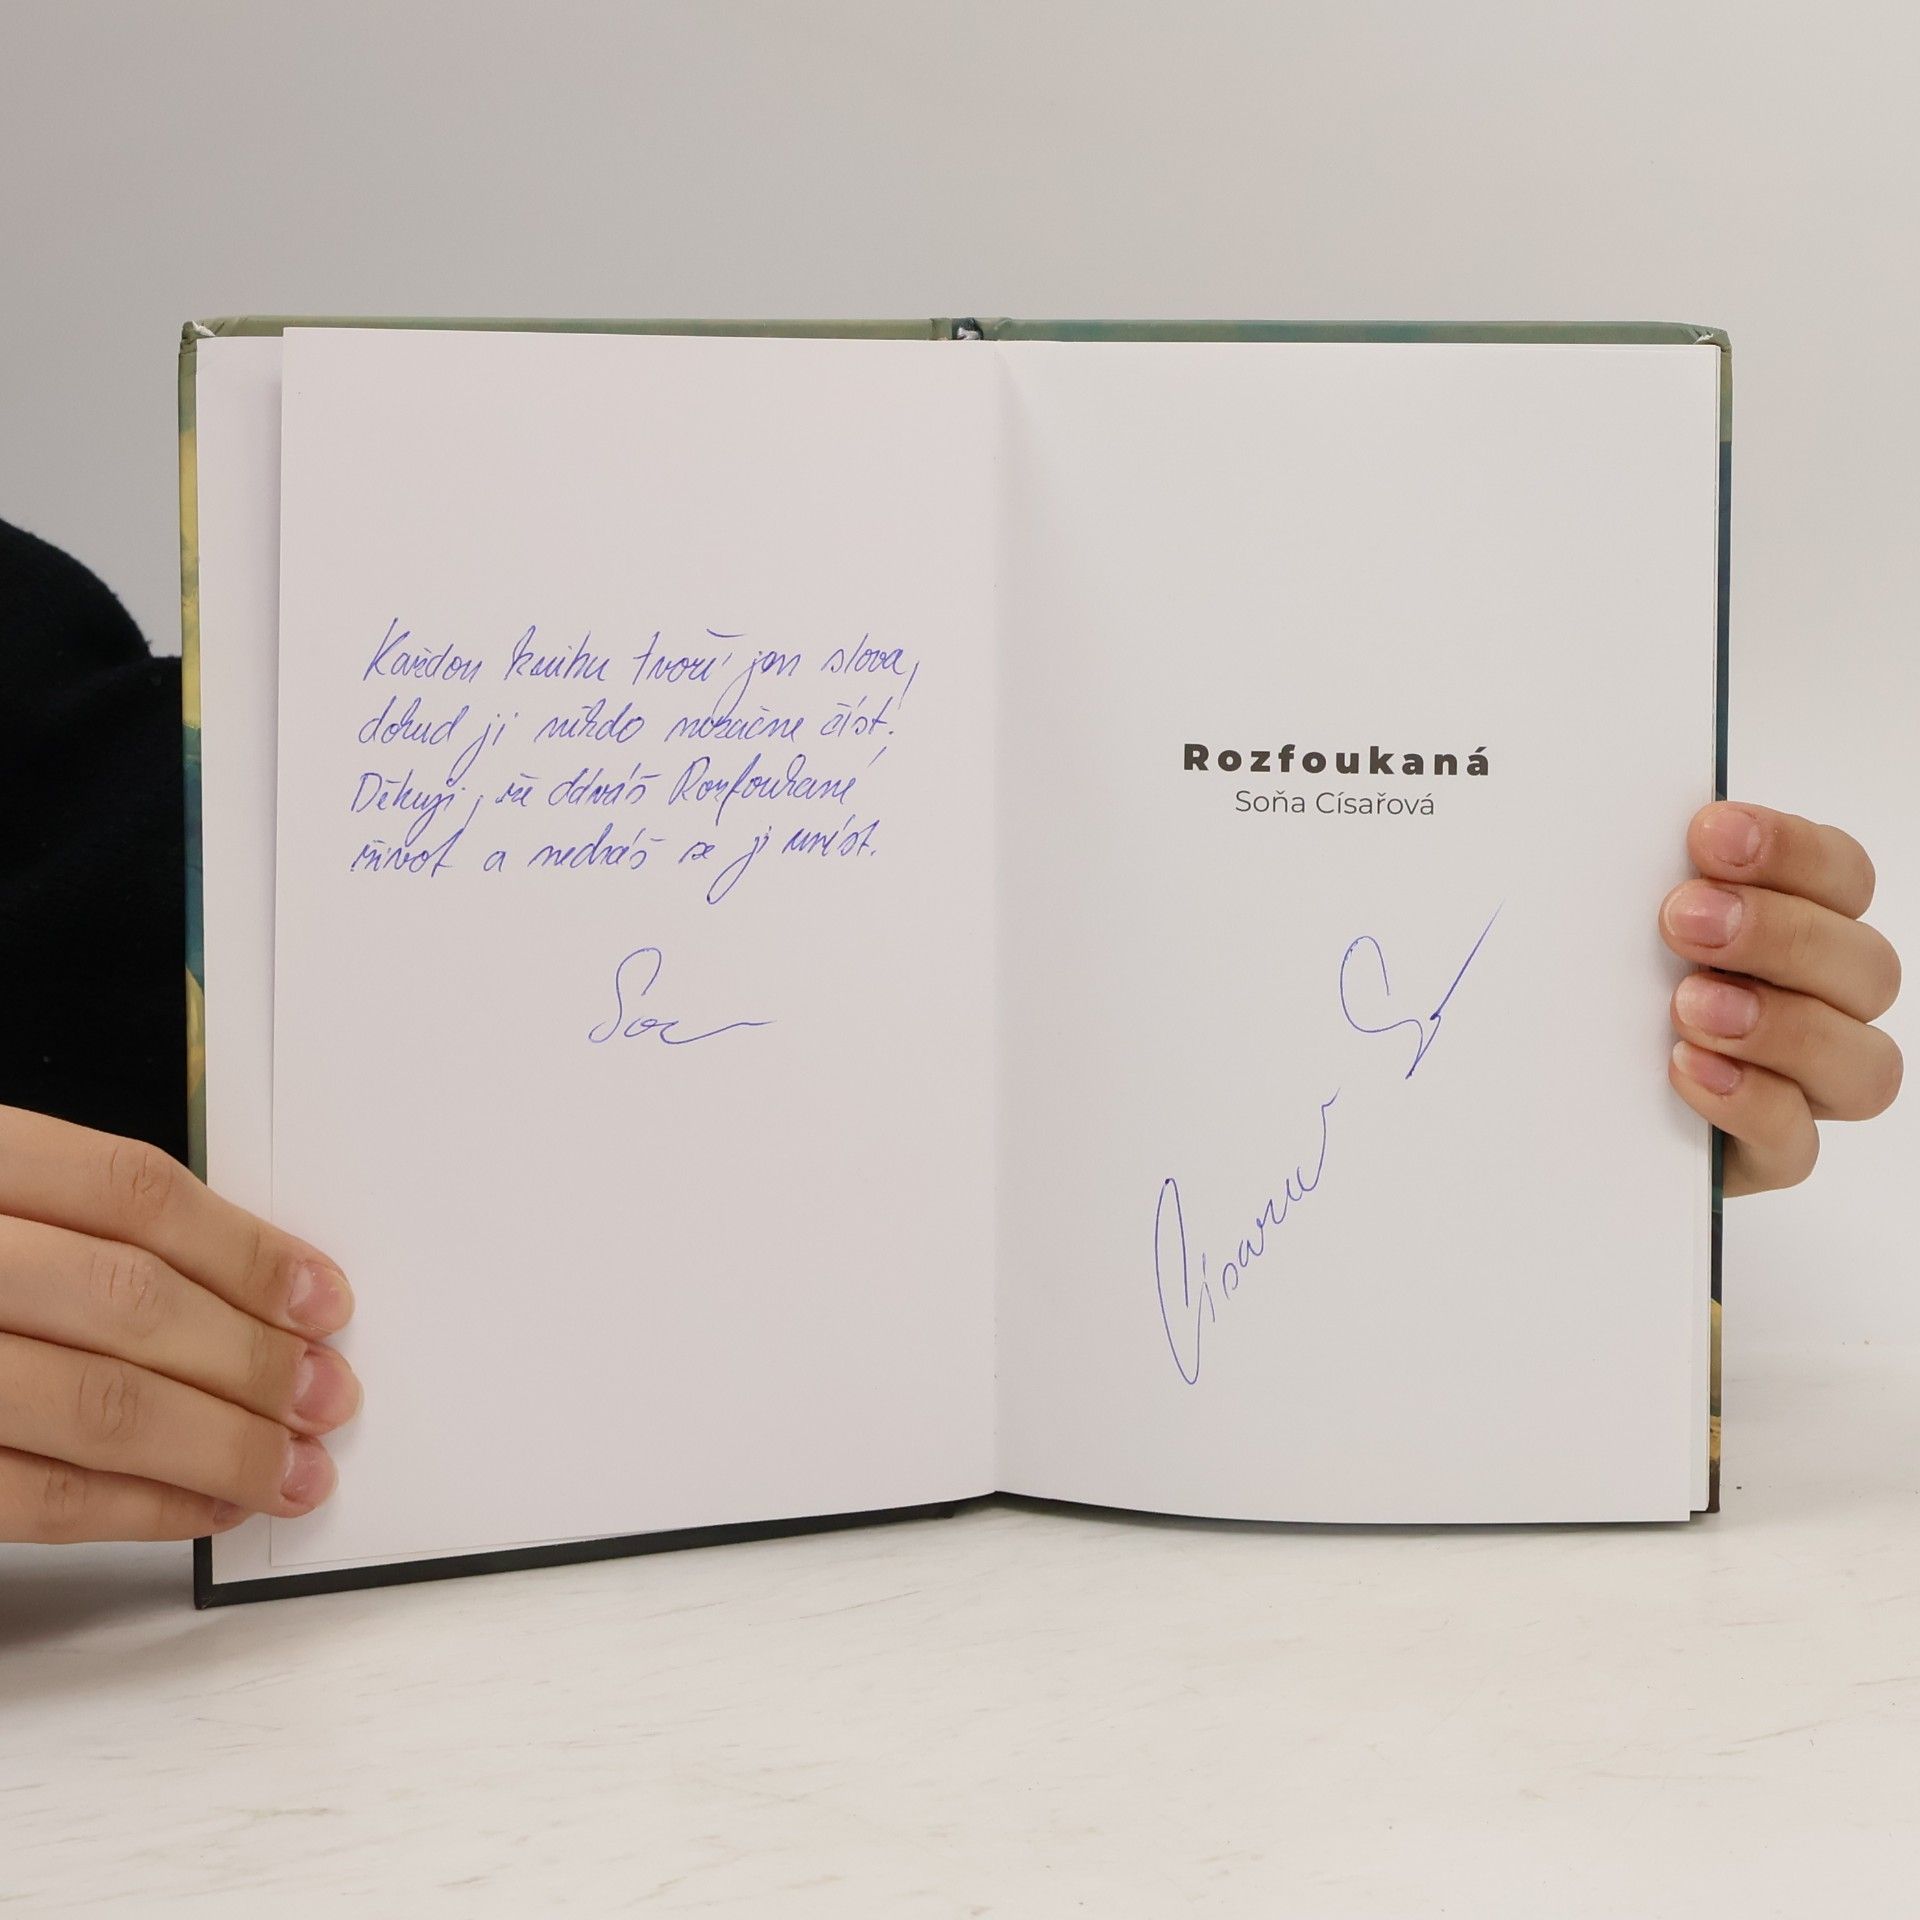 Každou knihu tvoří jen slova,
dokud ji nikdo nezačne číst.
Děkuji, že dáváš Rozfoukané
život a necháš se jí unést.
Soňa
Rozfoukaná
Soňa Císařová
Císařová S